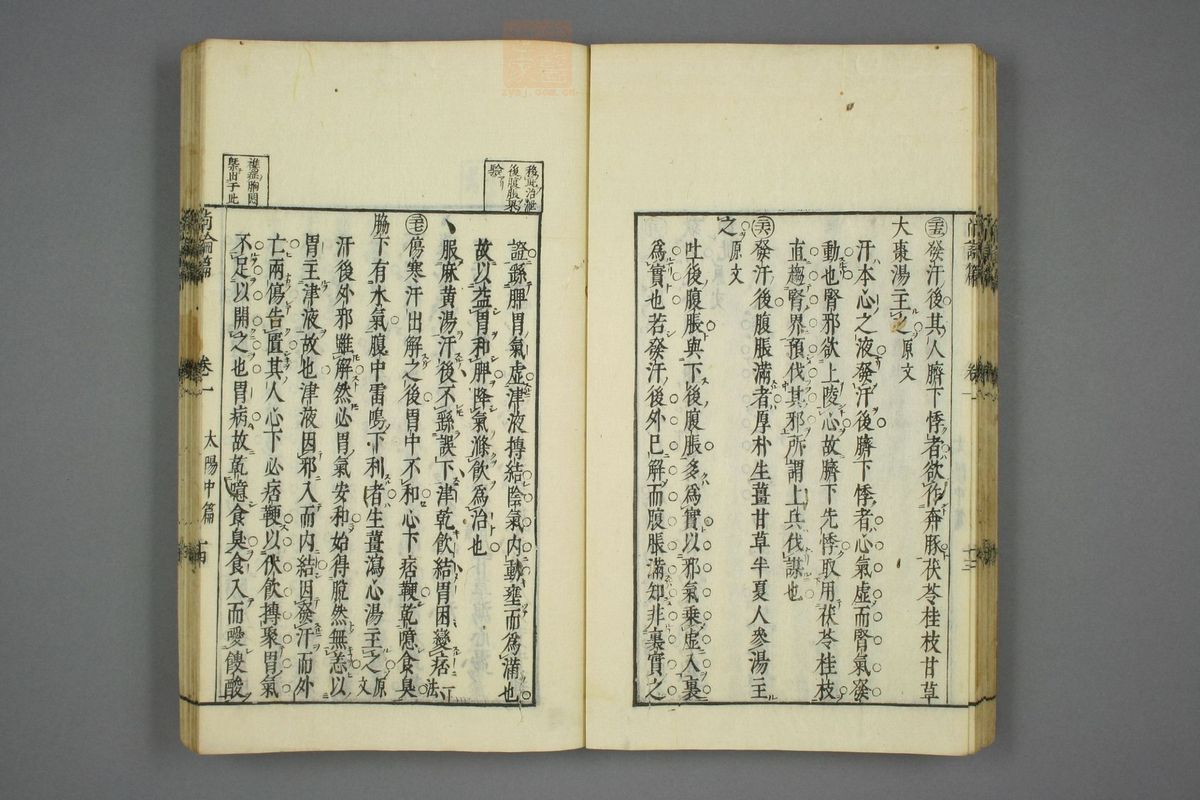 尚論篇 卷一 十三
㉕發汗後其人臍下悸者欲作奔豚茯苓桂枝甘草
大棗湯主之原文
汗本心之液發汗後臍下悸者心氣虛而腎氣發
動也腎邪欲上陵心故臍下先悸取用茯苓桂枝
直趨腎界預伐其邪所謂上兵伐謀也
㉖發汗後腹脹滿者厚朴生薑甘草半夏人參湯主
之原文
吐後腹脹與下後腹脹多爲實以邪氣乘虛入裏
爲實也若發汗後外已解而腹脹滿知非裏實之
移此治泄
後腹脹果
驗
證繇脾胃氣虛津液搏結陰氣內動壅而爲滿也
故以益胃和脾降氣滌飲爲治也
服麻黃湯汗後不繇誤下津乾飲結胃困變痞 法
㉗傷寒汗出解之後胃中不和心下痞鞕乾噫食臭
脇下有水氣腹中雷鳴下利者生薑瀉心湯主之原文
汗後外邪雖解然必胃氣安和始得脫然無恙以
胃主津液故也津液因邪入而內結因發汗而外
亡兩傷告匱其人心下必痞鞕以伏飲搏聚胃氣
不足以開之也胃病故乾噫食臭食入而噯餿酸
胸悶
槩由于此
尚論篇 卷一 太陽中篇 十四
zysj.com.cn